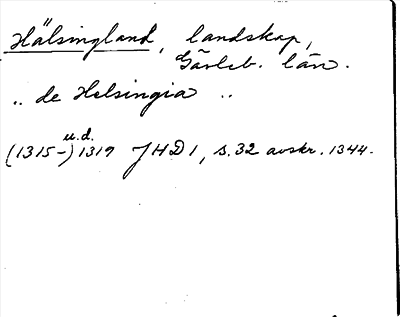 Hälsingland, landskap,
Gävleb. län.
.. de Helsingia ..
u.d.
(1315-) 1319 JHD 1, s. 32 avskr. 1344.